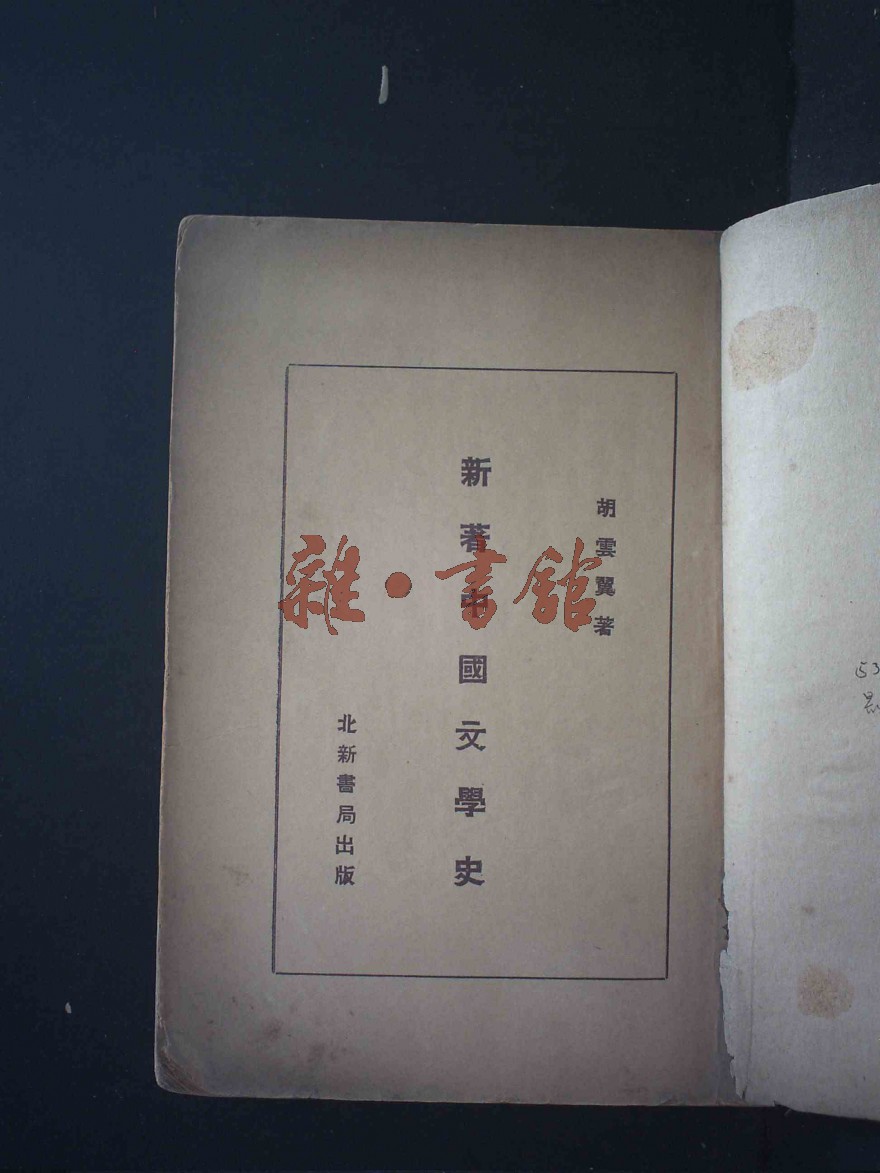 胡雲翼著
新著中國文學史
北新書局出版
雜·書館
53